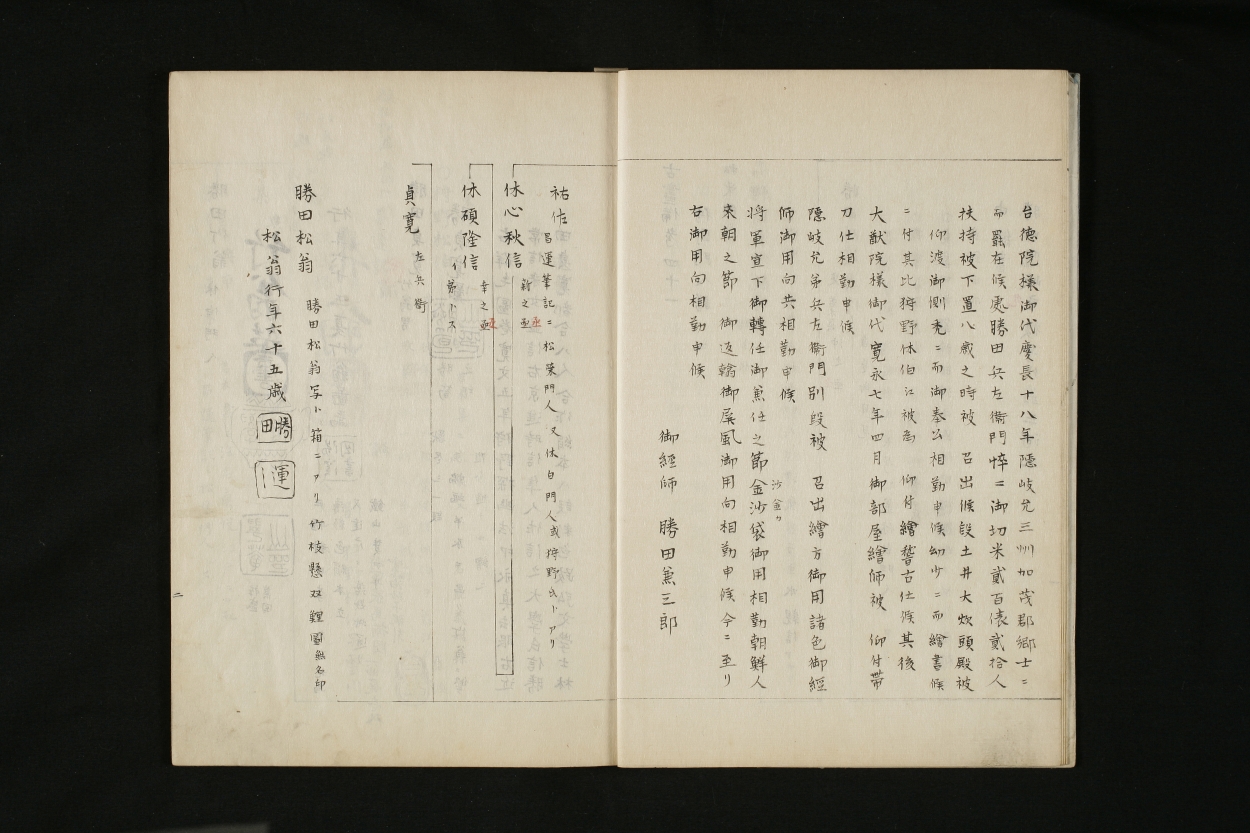 台徳院様御代慶長十八年隠岐允三州加茂郡郷士ニ
而罷在候處勝田兵左衞門悴ニ御切米貳百俵貳拾人
扶持被下置八歳之時被 召出候段土井大炊頭殿被
仰渡御側ニ而御奉公相勤申候幼少ニ而繪書候
ニ付其比狩野休伯江被為 仰付繪誓古仕候其後
大猷院様御代寛永七年四月御部屋繪師被 仰付帯
刀仕相勤申候
隠岐允弟兵左衞門別段被 召出繪方御用諸色御經
師御用向共相勤申候
将軍宣下御轉任御兼任之節金沙袋御用相勤朝鮮人
沙金カ
来朝之節 御返翰御屏風御用向相勤申候今ニ至リ
右御用向相勤申候
御經師 勝田兼三郎
祐佐
昌運筆記ニ松榮門人又休白門人或狩野氏トアリ
休心秋信 新之丞
丞
休碩隆信 幸之丞
丞
イ弟トス
貞寛 左兵衞
勝田松翁 勝田松翁写ト箱ニアリ竹枝懸双鯉圖無名印
松翁行年六十五歳
勝田
運
二